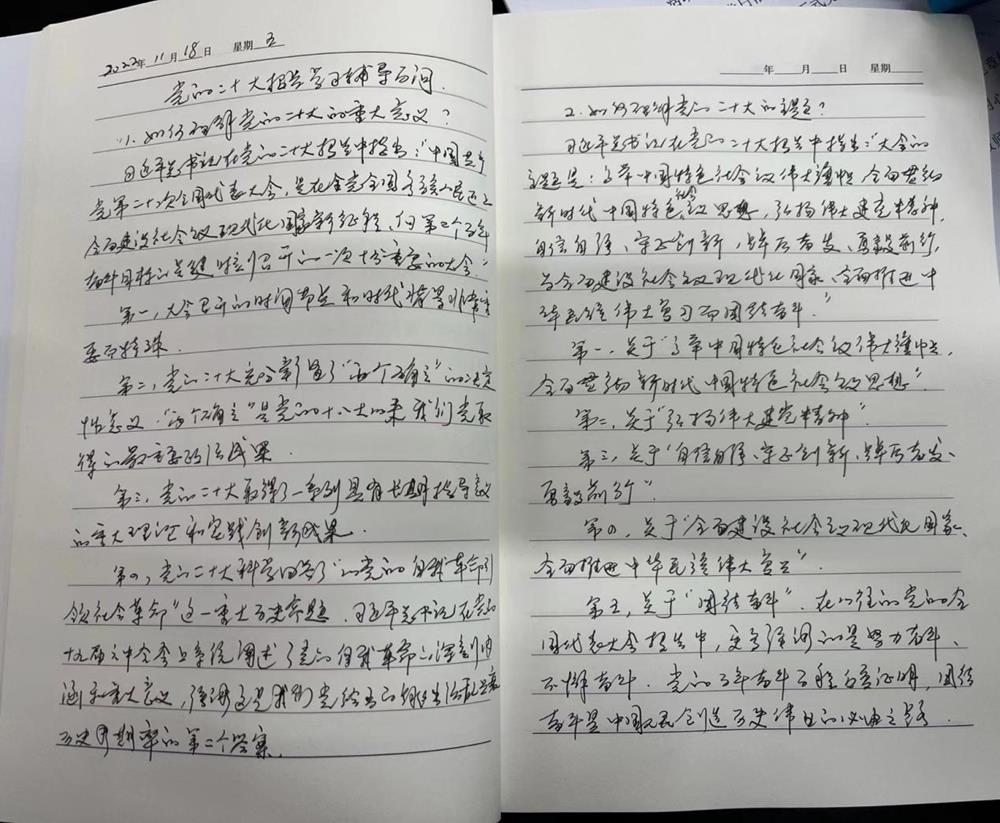 2022年 11月 18日 星期 五
党的二十大报告学习辅导百问
1. 如何理解党的二十大的重大意义?
习近平总书记在党的二十大报告中指出:"中国共产
党第二十次全国代表大会,是在全党全国各族人民迈上
全面建设社会主义现代化国家新征程、向第二个百年
奋斗目标的关键时刻召开的一次十分重要的大会。"
第一,大会召开的时间节点和时代背景非常重
要而特殊.
第二,党的二十大充分彰显了"两个确立"的决定
性意义."两个确立"是党的十八大以来我们党取
得的最重要政治成果.
第三,党的二十大取得了一系列具有长期指导意义
的重大理论和实践创新成果.
第四,党的二十大科学回答了"以党的自我革命引
领社会革命"这一重大历史命题.习近平总书记在党的
十九届六中全会上系统阐述了党的自我革命的深刻内
涵和重大意义,强调这是我们党给出的跳出治乱兴衰
历史周期率的第二个答案.
年 月 日 星期
2. 如何理解党的二十大的主题?
习近平总书记在党的二十大报告中指出:"大会的
主题是:高举中国特色社会主义伟大旗帜,全面贯彻
新时代中国特色社会主义思想,弘扬伟大建党精神,
自信自强、守正创新,踔厉奋发、勇毅前行,
为全面建设社会主义现代化国家、全面推进中
华民族伟大复兴而团结奋斗."
第一,关于"高举中国特色社会主义伟大旗帜,
全面贯彻新时代中国特色社会主义思想".
第二,关于"弘扬伟大建党精神".
第三,关于"自信自强、守正创新、踔厉奋发、
勇毅前行".
第四,关于"全面建设社会主义现代化国家、
全面推进中华民族伟大复兴".
第五,关于"团结奋斗".在以往的党的全
国代表大会报告中,更多强调的是努力奋斗、
不懈奋斗.党的百年奋斗历程的证明,团结
奋斗是中国人民创造历史伟业的必由之路.